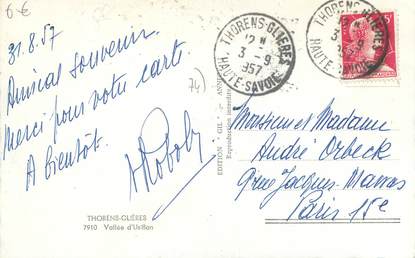 6€
31.8.57
Amical souvenir.
Merci pour votre carte.
A bientôt.
THORENS-GLIÈRES
7910 Vallée d'Usillon
(74)
THORENS-GLIÈRES
12 H
3 - 9
1957
HAUTE-SAVOIE
THORENS-GLIÈRES
12 H
3 - 9
HAUTE-SAVOIE
Monsieur et Madame
André Orbeck
rue Jacques
Paris 15e
EDITION "GIL"
Reproduction interdite